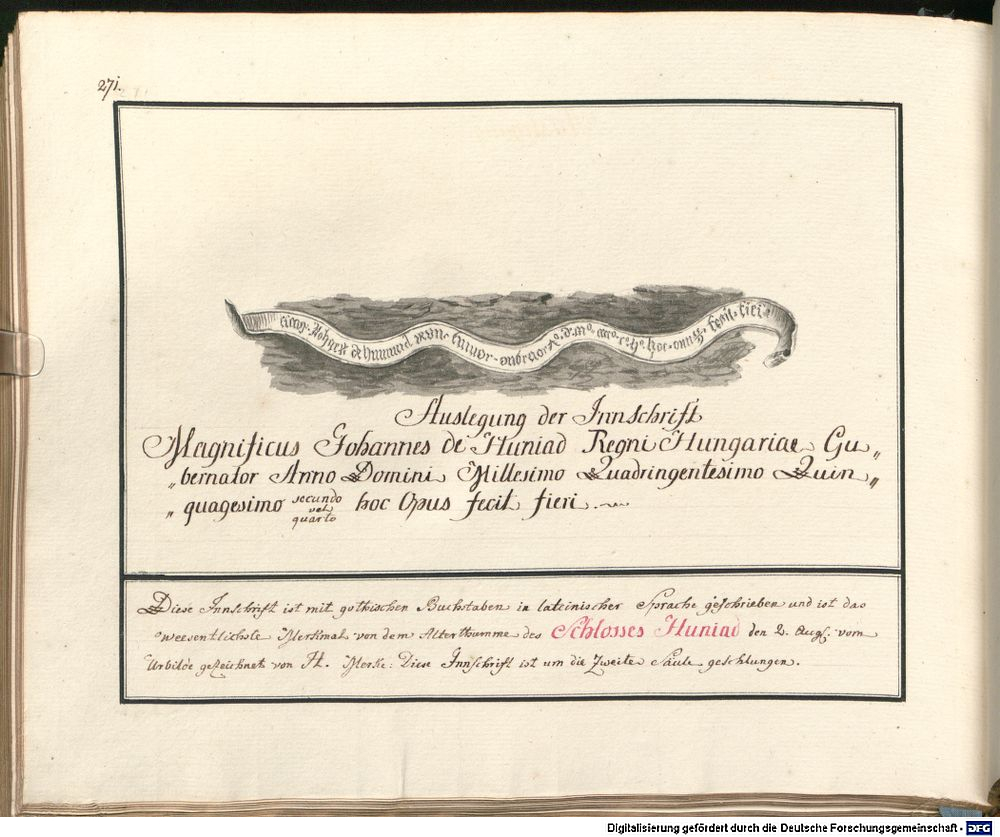 271.
Auslegung der Innschrift
Magnificus Johannes de Huniad Regni Hungariae Gu„
„bernator Anno Domini Millesimo Quadringentesimo Quin„
„quagesimo secundo vel quarto hoc Opus fecit fieri.
Diese Innschrift ist mit gothischen Buchstaben in lateinischer Sprache geschrieben und ist das
weesentlichste Merkmal von dem Alterthumme des Schlosses Huniad den 2. Aug. vom
Urbilde gezeichnet von H. Merke: Diese Innschrift ist um die Zweite Säule geschlungen.
Digitalisierung gefördert durch die Deutsche Forschungsgemeinschaft - DFG